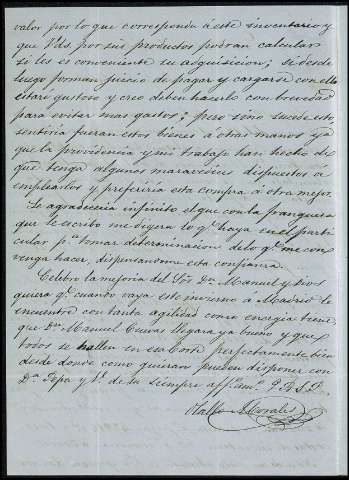 valor por lo que corresponda á este inventario y
que Vds. por sus productos podran calcular
si les es conveniente su adquisicion; si desde
luego forman juicio de pagar y cargarse con ello
estaré gustoso y creo deben hacerlo con brevedad
para evitar mas gastos; pero si no sucede esto,
sentiria fueran estos bienes á otras manos ya
que la providencia y mi trabajo han hecho de
que tenga algunos maravedises dispuestos a
emplearlos y preferiria esta compra á otra mejor.
Le agradeceria infinito el que con la franqueza
que le escribo me digera lo q.e haya en el parti
cular p.a tomar determinacion de lo q.e me con
venga hacer, dispensandome esta confianza.
Celebro la mejoria del Sor. Dn. Manuel y Dios
quiera q.e cuando vaya este invierno a Madrid le
encuentre con tanta agilidad como energia tiene,
que Dn. Manuel Cuevas llegara ya bueno y que
todos se hallen en esa Corte perfectamente bien
desde donde como quieran pueden disponer con
Da. Pepa y V. de su siempre aff.mo am.o
Morales